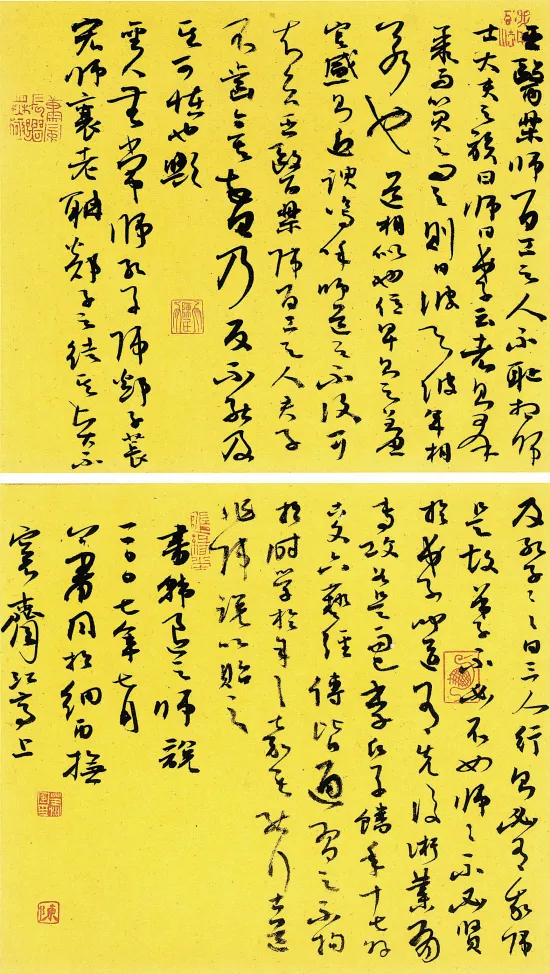 巫醫樂師百工之人不恥相師
士大夫之族曰師曰弟子云者則群
聚而笑之問之則曰彼與彼年相
若也道相似也位卑則足羞
官盛則近諛嗚呼師道之不復可
知矣巫醫樂師百工之人君子
不齒今其智乃反不能及
其可怪也歟
聖人無常師孔子師郯子萇
宏師襄老聃郯子之徒其賢不
及孔子孔子曰三人行則必有我師
是故弟子不必不如師師不必賢
於弟子聞道有先後術業有
專攻如是而已李氏子蟠年十七好
古文六藝經傳皆通習之不拘
於時學於余余嘉其能行古道
作師說以貽之
書韓退之師說
二〇〇七年七月